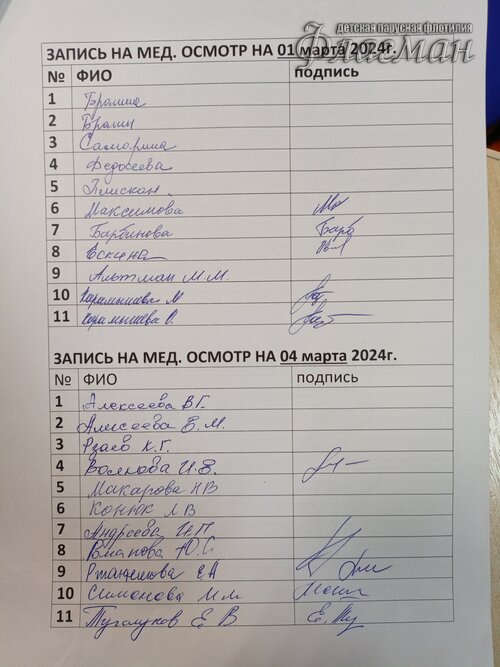 детская парусная флотилия
Флагман
ЗАПИСЬ НА МЕД. ОСМОТР НА 01 марта 2024г.
№ ФИО подпись
1
2
3 Саморина
4 Федосеева
5 Плискан.
6 Максимова
7 Барбинова Барб
8 Ескина
9 Альтман М.М.
10 Карамышева М
11 Карамышева О.
ЗАПИСЬ НА МЕД. ОСМОТР НА 04 марта 2024г.
№ ФИО подпись
1 Алексеева В.Г.
2 Алисеева В.М.
3 Рзаев К.Г.
4 Волкова И.В.
5 Макарова НВ
6 Конюк ЛВ
7 Андреева И.П.
8 Ю.С
9 ЕА
10 Симонова
11 Тугалуков Е В